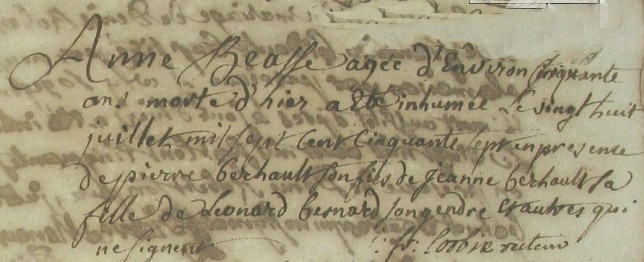 Anne Beasse agée d'Environ Cinquante
ans morte d'hier a Eté inhumée Le vingt huit
juillet mil sept Cent Cinquante sept en presence
de pierre berhault son fils de jeanne berhault sa
fille de Leonard besnard son gendre Et autres qui
ne signent recteur